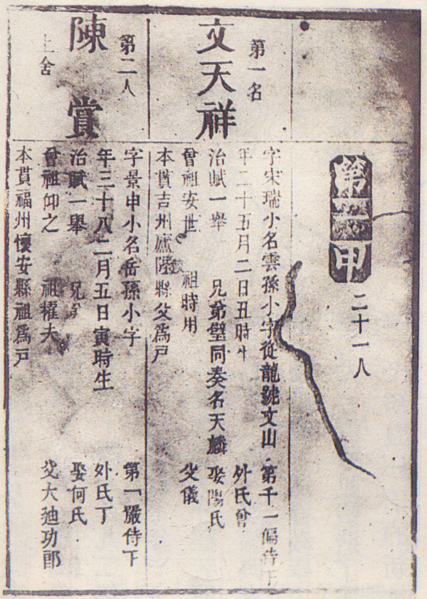 第一甲
二十一人
第一名
文天祥
字宋瑞小名雲孫小字從龍 文山 第千一偏侍下
年二十五月二日丑時生 外氏曾
治賦一舉 兄弟璧同奏名天麟 娶歐陽氏
曾祖安世 祖時用 父儀
本貫吉州廬陵縣父爲戸
第二人
陳賞
上舍
字景申小名岳孫小字 第一嚴侍下
年三十八二月五日寅時生 外氏丁
治賦一舉 兄 娶何氏
曾祖仰之 祖權夫 父大 功郎
本貫福州懷安縣祖爲戸